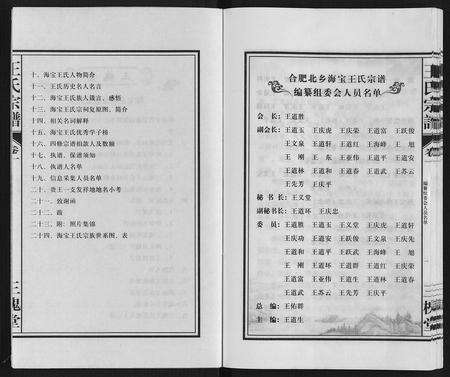 王氏宗谱
卷一
三槐堂
十、海宝王氏人物简介
十一、王氏历史名人名言
十二、海宝王氏族人箴言、感悟
十三、海宝王氏宗祠复原图、简介
十四、相关名词解释
十五、海宝王氏优秀学子榜
十六、四修宗谱捐款人及数额
十七、执谱、保谱须知
十八、执谱人名单
十九、信息采集人员名单
二十、贵王一支发祥地地名小考
二十一、致谢函
二十二、跋
二十三、附：照片集锦
二十四、海宝王氏宗族世系图、表
合肥北乡海宝王氏宗谱
编纂组委会人员名单
会　长：王道胜
副会长：王道玉　王庆虎　王庆荣　王道富　王跃俊
王文泉　王道轩　王道红　王海峰　王　旭
王　刚　王　东　王亚伟　王道平　王道安
王道林　王道和　王道春　王道武　王苏云
王先芳　王庆平
秘书长：王义堂
副秘书长：王道环　王庆忠
委　员：王道胜　王道玉　王义堂　王庆虎　王道轩
王庆功　王道安　王跃俊　王文泉　王庆先
王道和　王道平　王跃武　王海峰　王　旭
王　刚　王道环　王道群　王道红　王庆荣
王道富　王亚伟　王道生　王道林　王道春
王道武　王苏云　王先芳　王庆平
总　编：王佑群
主　编：王道生
王氏宗谱
卷一
编纂组委会人员名单
槐堂